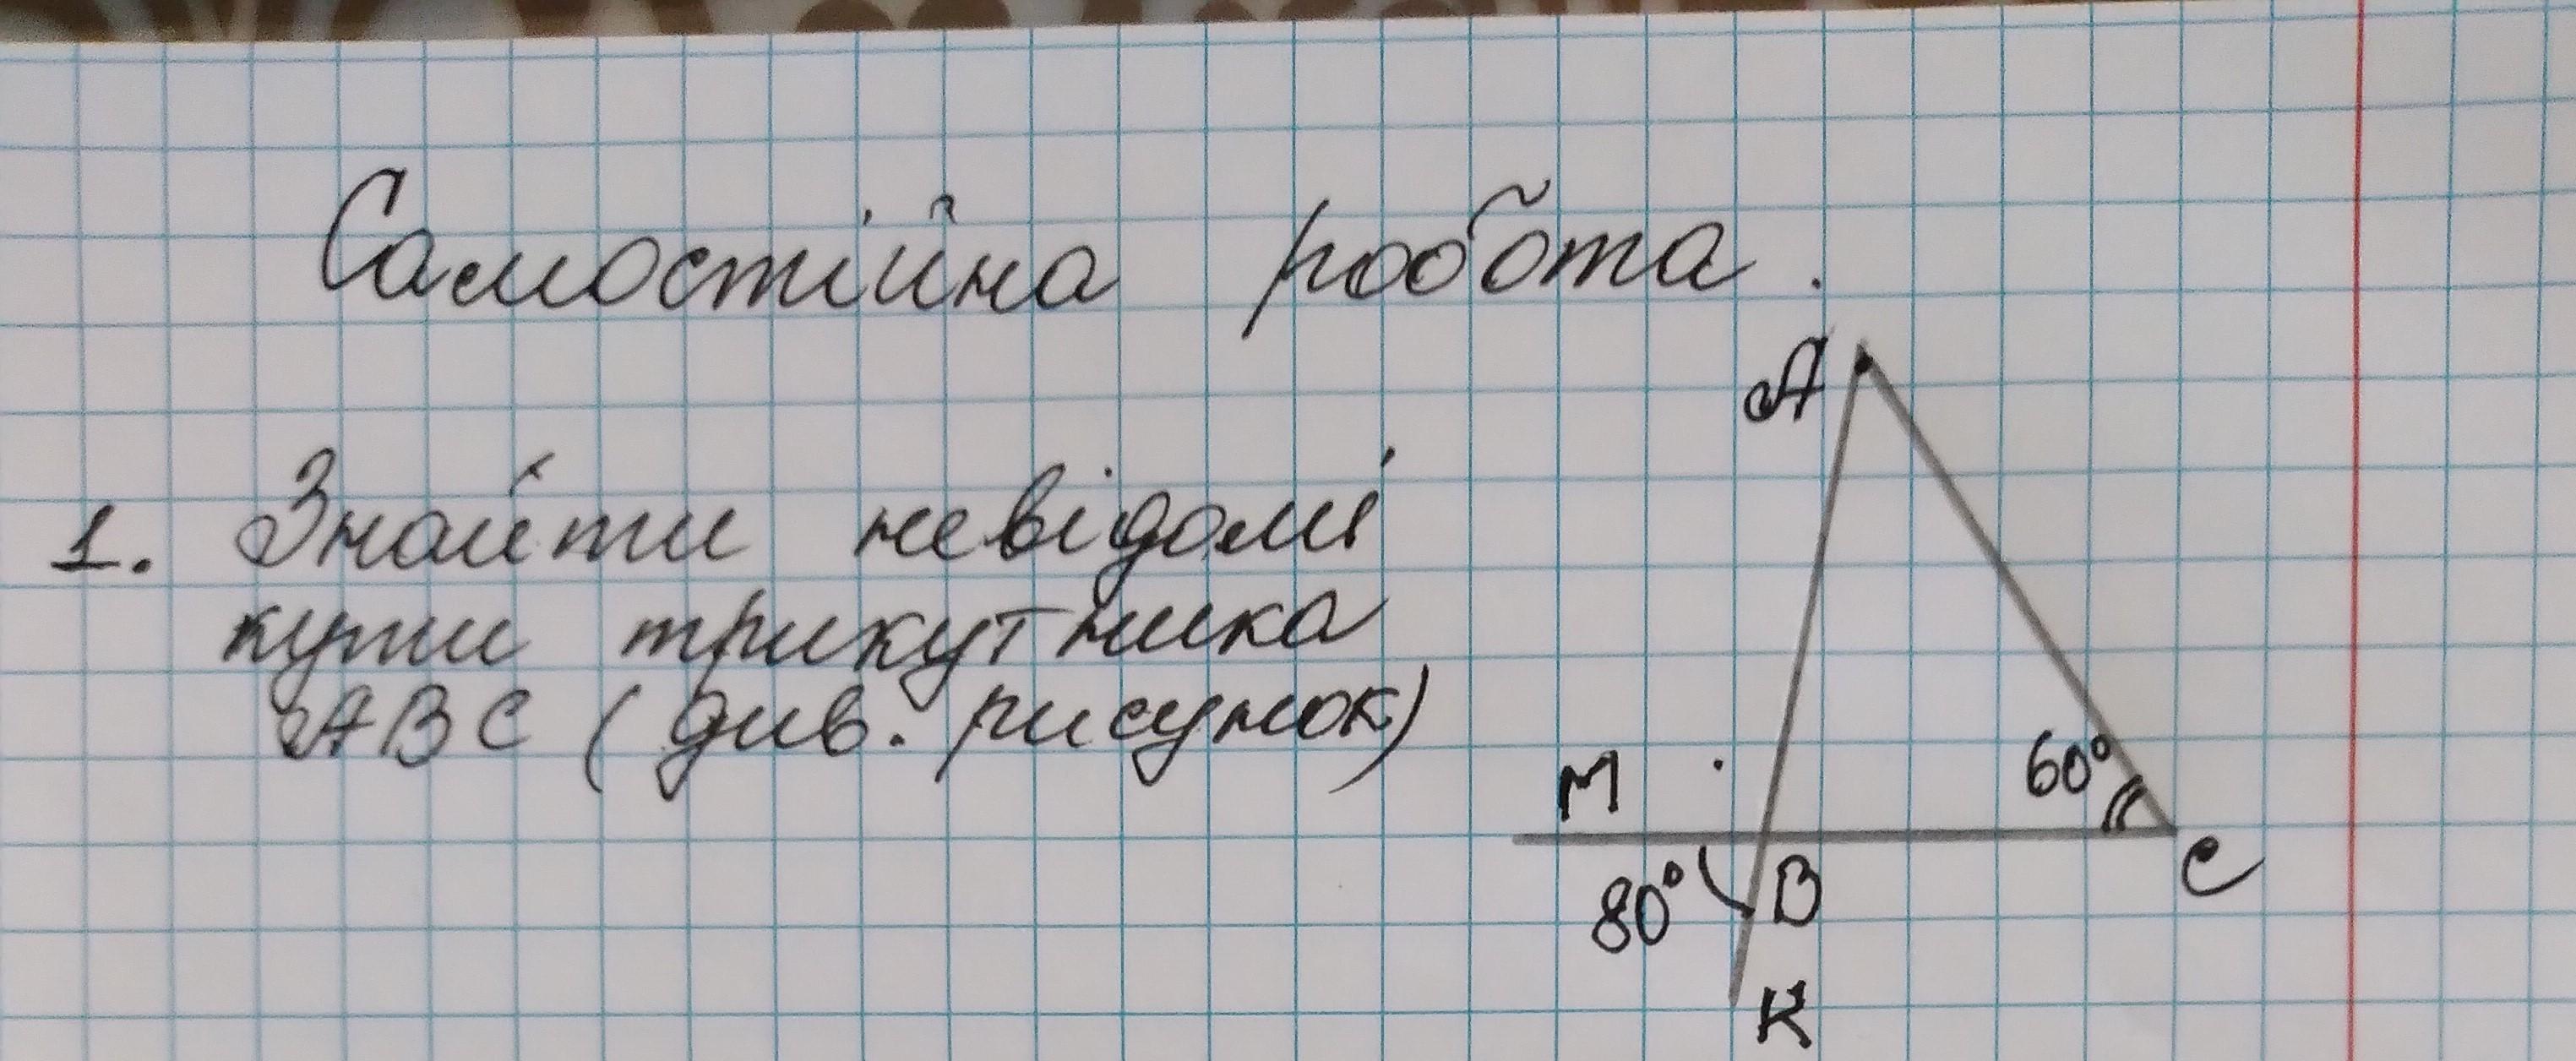 Самостійна робота.
1. Знайти невідомі
кути трикутника
ABC (див. рисунок)
A
60°
M
C
80°
B
K